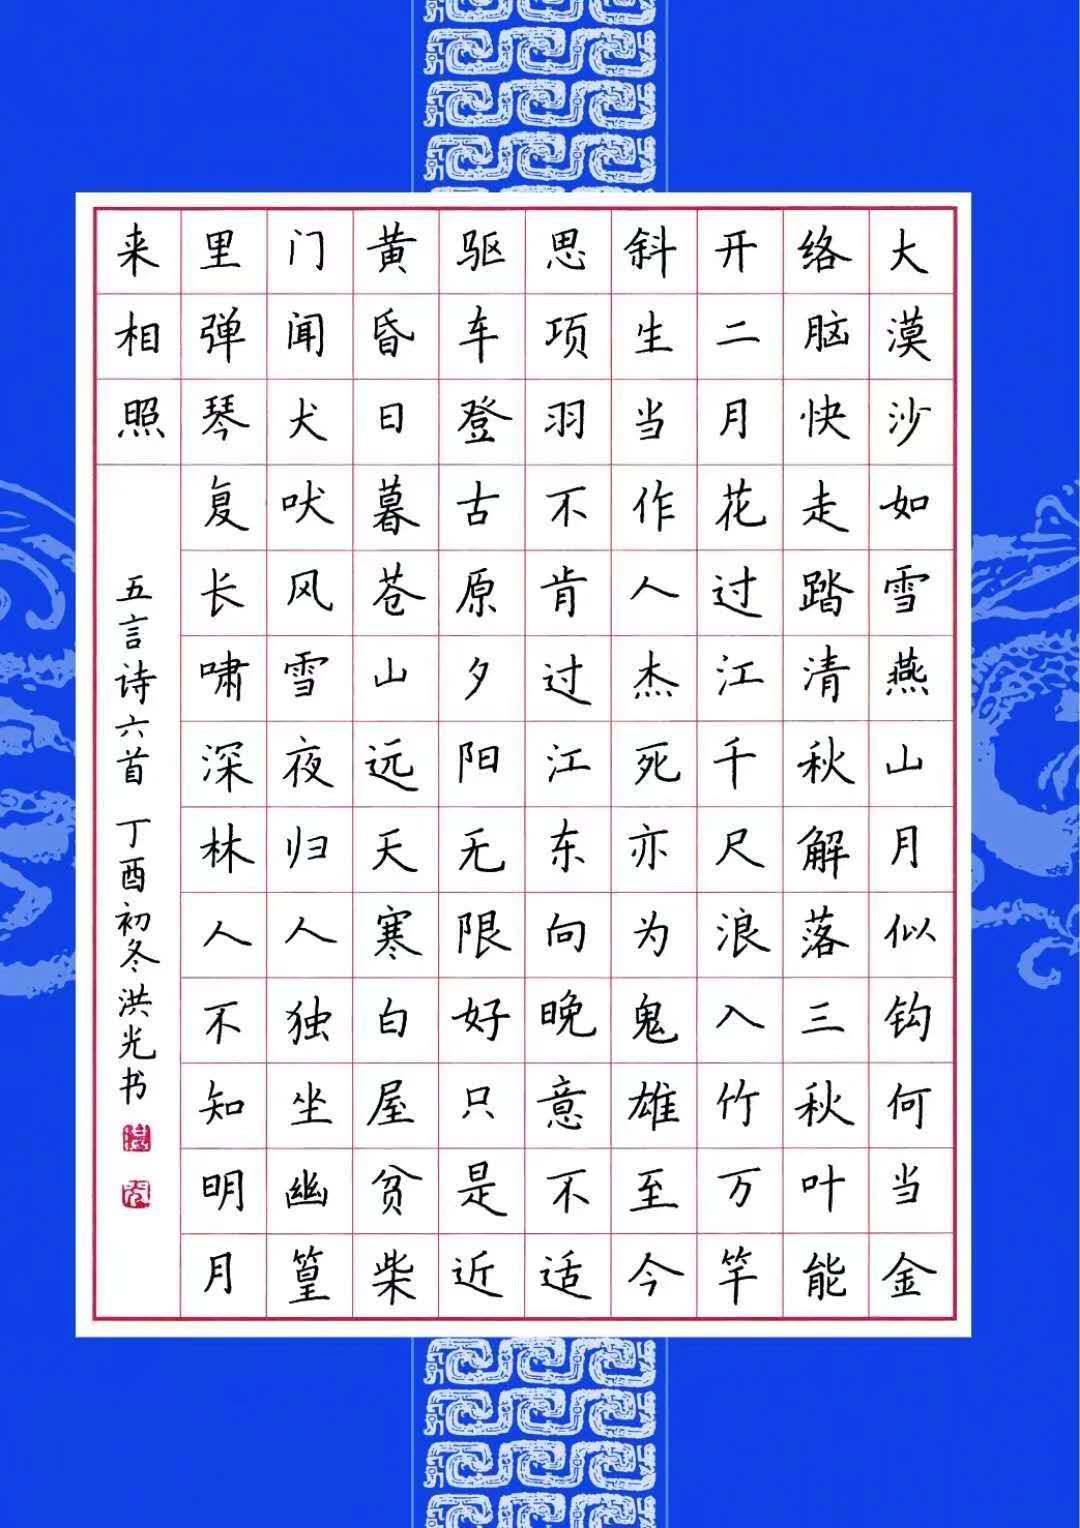 大漠沙如雪燕山月似钩何当金
络脑快走踏清秋解落三秋叶能
开二月花过江千尺浪入竹万竿
斜生当作人杰死亦为鬼雄至今
思项羽不肯过江东向晚意不适
驱车登古原夕阳无限好只是近
黄昏日暮苍山远天寒白屋贫柴
门闻犬吠风雪夜归人独坐幽篁
里弹琴复长啸深林人不知明月
来相照
五言诗六首 丁酉初冬洪光书